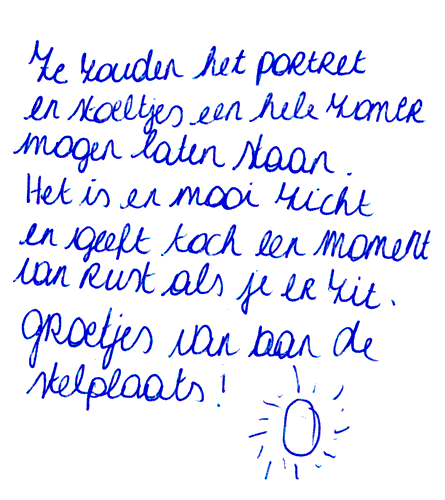 Ze zouden het portret
en stoeltjes een hele zomer
mogen laten staan.
Het is en mooi zicht
en geeft toch een moment
van rust als je er zit.
groetjes van aan de
stelplaats!